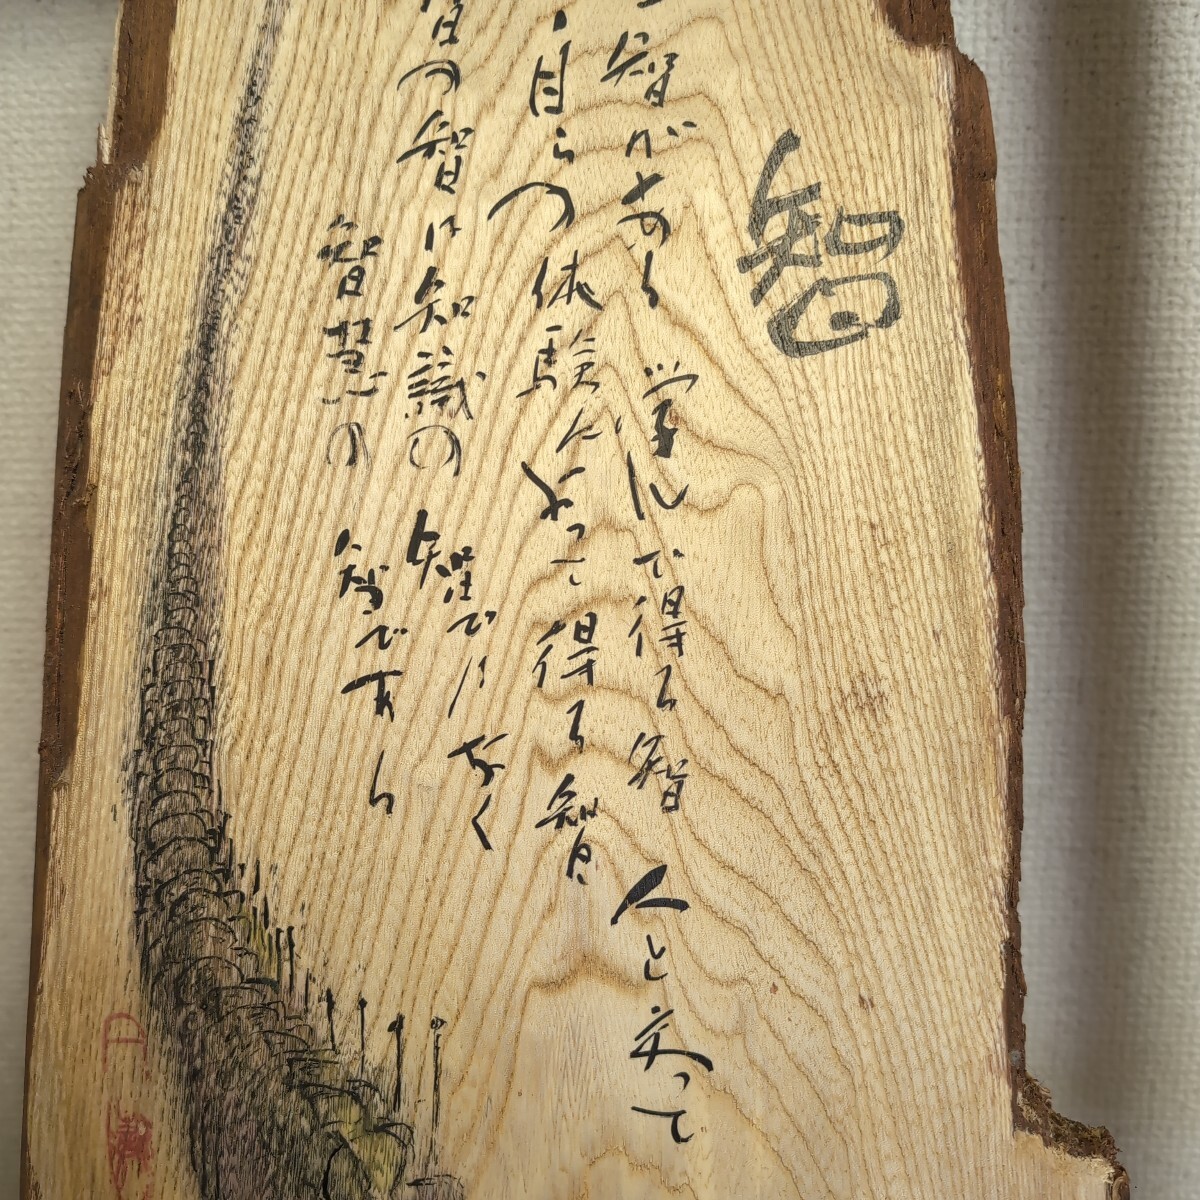 智
智がある 学んで得る智 人と交って
自らの体験によって得る智
智の智は知識の智ではなく
智慧の智である